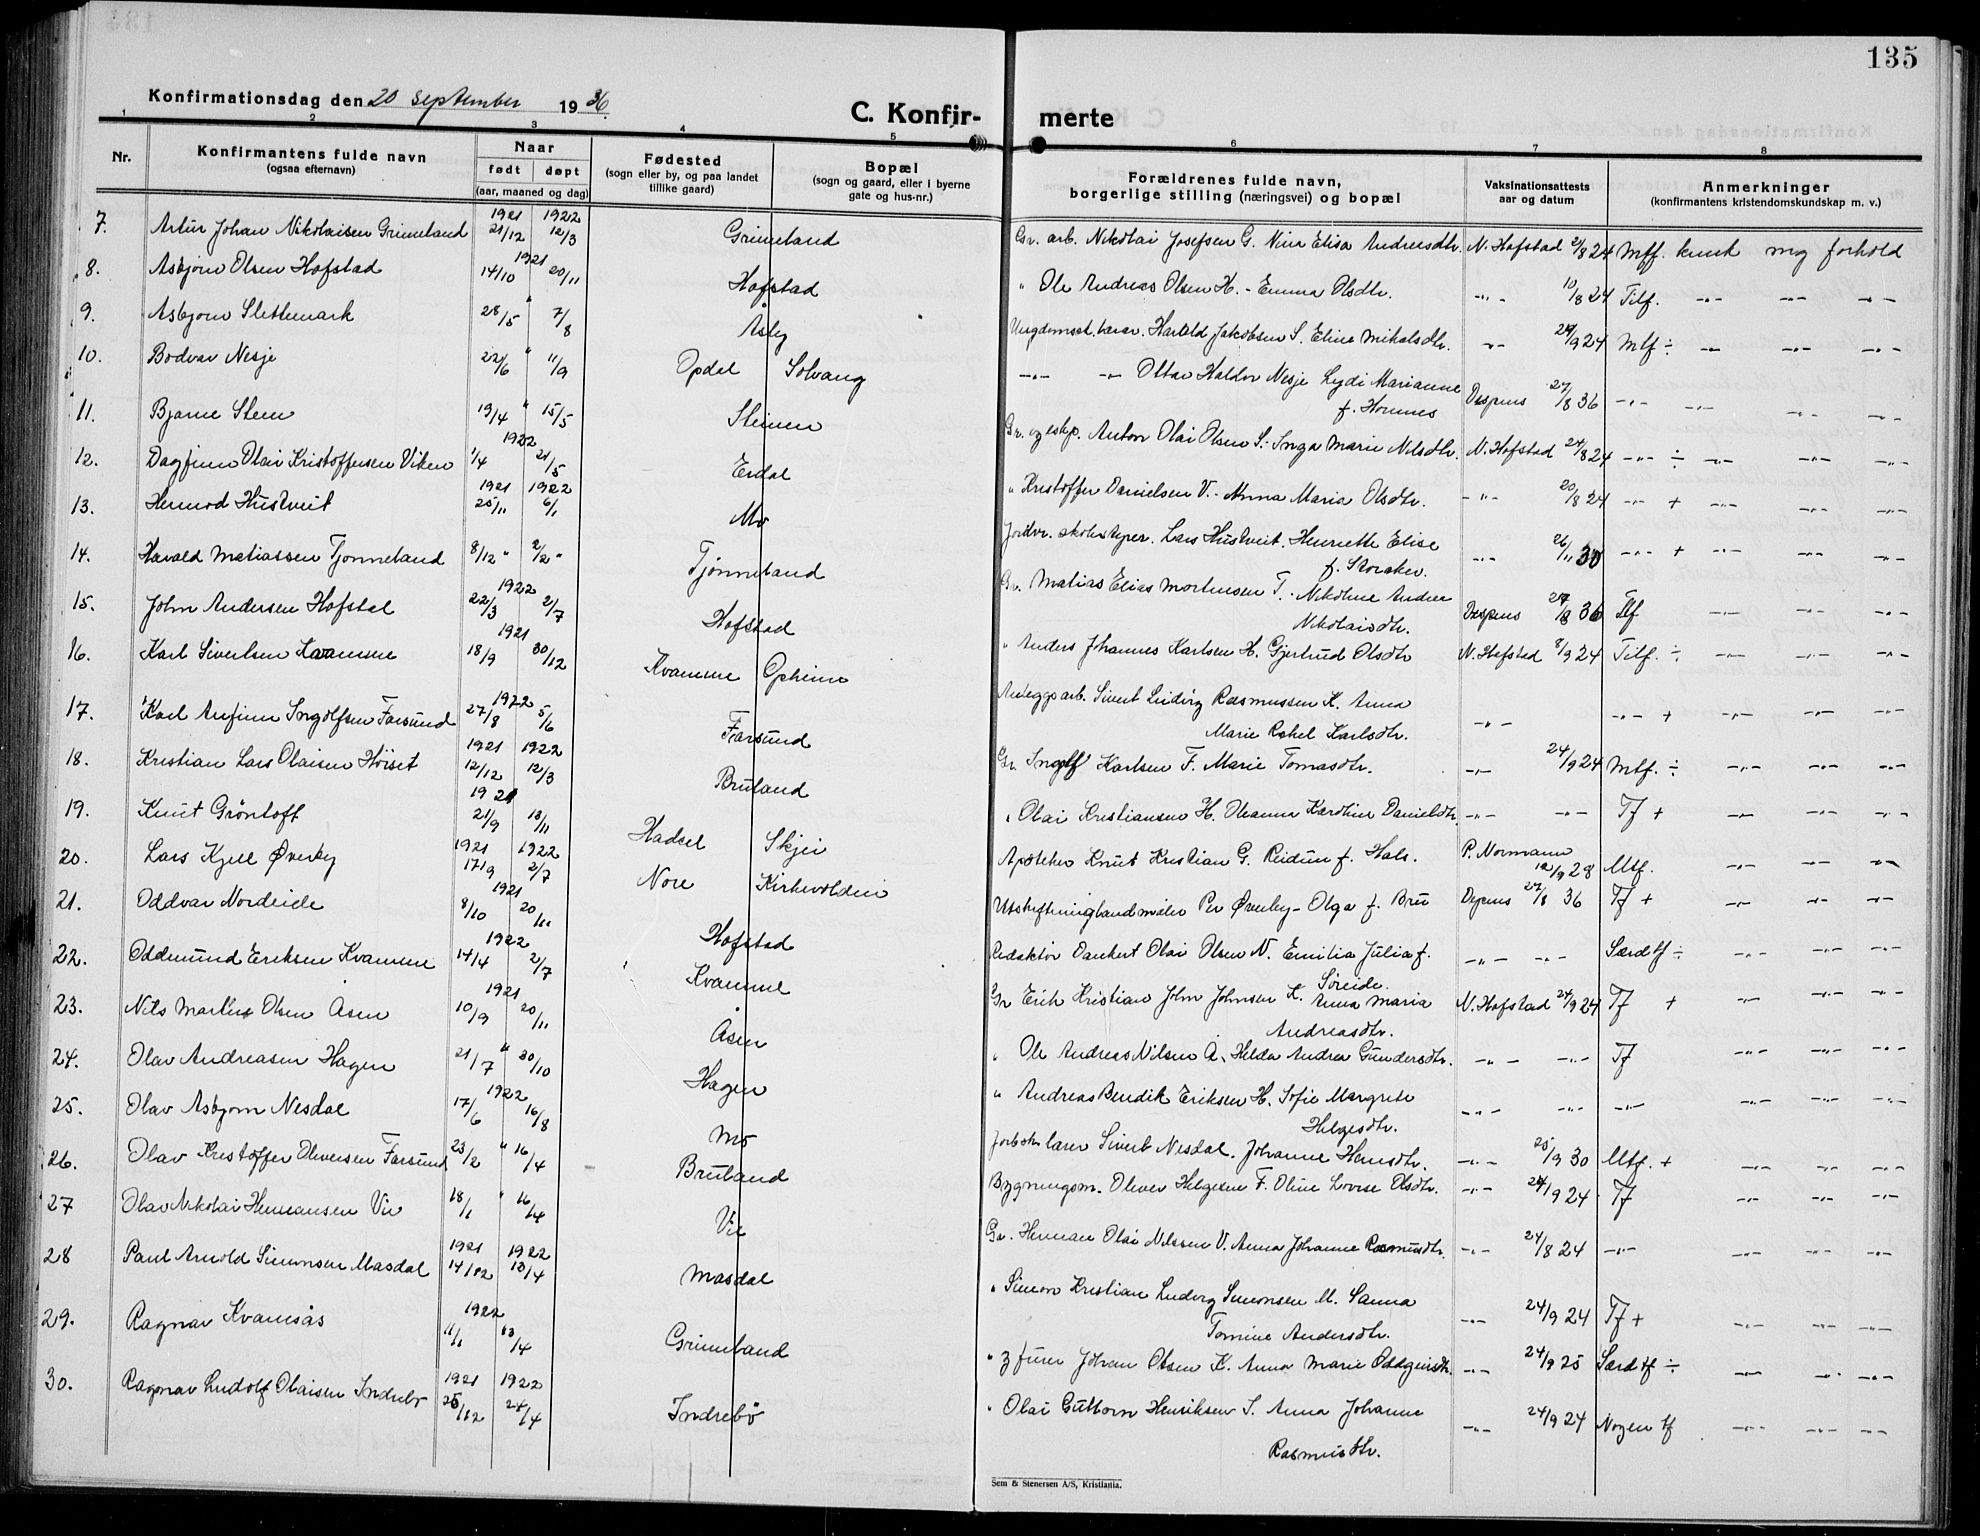 135
Konfirmationsdag den 20 september 1936.
C. Konfir- merte
1 2 3 4 5 6 7 8
Nr.
Konfirmantens fulde navn
(ogsaa efternavn)
Naar
født døpt
(aar, maaned og dag)
Fødested
(sogn eller by, og paa landet
tillike gaard)
Bopæl
(sogn og gaard, eller i byerne
gate og hus-nr.)
Forældrenes fulde navn,
borgerlige stilling (næringsvei) og bopæl
Vaksinationsattests
aar og datum
Anmerkninger
(konfirmantens kristendomskundskap m. v.)
7. Artur Johan Nikolaisen Grimeland 1921 21/12 1922 12/3 Grimeland Gr. arb. Nikolai Josefsen G. Nina Elisa Andreasdtr. N. Hofstad 21/8 24 Mff. kunsk og forhold
8. Asbjørn Olsen Hofstad 14/10 1921 20/11 Hofstad " Ole Andreas Olsen H. - Emma Olsdtr. -"- 10/8 24 Tilf. -"- -"- -"-
9. Asbjørn Slettemark 28/5 " 7/8 Åsly Ungdomssk.lærer. Harald Jakobsen S. Eline Mikalsdtr. -"- 24/9 24 Mtf ÷ -"- -"- -"-
10. Bodvar Nesje 22/6 " 11/9 Opdal Solvang -"- -"- Ottar Haldor Nesje Lydi Marianne
f. Hornnes Dispens 27/8 36 -"- -"- -"- -"-
11. Bjarne Steen 19/4 " 15/5 Steinen Gr. og eskp. Anton Olai Olsen S. - Inga Marie Nilsdtr. N. Hofstad 24/8 24 -"- ÷ -"- -"- -"-
12. Dagfinn Olai Kristoffersen Viken 1922 1/4 21/5 Erdal " Kristoffer Danielsen V. - Anna Maria Olsdtr. -"- 20/8 24 -"- + -"- -"- -"-
13. Hermod Hustveit 1921 25/11 1922 6/1 Mo Jordbr. skolestyrer. Lars Hustveit. Henriette Elise
f. Storaker. -"- 26/11 30 -"- + -"- -"- -"-
14. Harald Matiassen Tjønneland 8/12 " 2/2 " Tjønneland Gr. Matias Elias Mortensen T. - Nikoline Andrea
Nikolaisdtr. Dispens 27/8 36 Tlf -"- -"- -"-
15. John Andersen Hofstad 1922 22/3 2/7 Hofstad " Anders Johannes Karlsen H. Gjertrud Olsdtr N. Hofstad 8/9 24 Tilf. ÷ -"- -"- -"-
16. Karl Sivertsen Kvamme 1921 18/9 30/12 Kvamme Opheim Anleggsarb. Sivert Ludvig Rasmussen K. Anna
Marie Rakel Karlsdtr. -"- -"- + -"- -"- -"-
17. Karl Anfinn Ingolfsen Farsund 1922 27/8 5/6 Farsund Gr Ingolf Karlsen F. Marie Tomasdtr. -"- 24/9 24 Mtf. ÷ -"- -"- -"-
18. Kristian Lars Olaisen Høiset 1921 12/12 1922 12/3 Bruland " Olai Kristiansen H. Oleanna Karoline Danielsdtr. -"- -"- Tf + -"- -"- -"-
19. Knut Grøntoft 1921 21/9 13/11 Hadsel Skjei Apoteker Knut Kristian G. Reidun f. Hals. P. Normann 12/9 28 Mtf. -"- -"- -"-
20. Lars Kjell Øverby 1921 17/9 1922 2/7 Nore Kirkevolden Utskiftninglandmåler Per Øverby - Olga f. Bru Dispens 27/8 36 Tf + -"- -"- -"-
21. Oddvar Nordeide 1921 8/10 20/11 Hofstad Redaktør Dankert Olai Olsen N. Emilia Julia f.
Søreide. -"- -"- Særd tf ÷ -"- -"- -"-
22. Oddmund Eriksen Kvamme 1922 14/4 2/7 Kvamme Gr Erik Kristian John Johnsen K. Anna Maria
Andreasdtr. N. Hofstad 24/9 24 Tf + -"- -"- -"-
23. Nils Martin Olsen Åsen 1921 10/9 20/11 Åsen " Ole Andreas Nilsen Å, Helda Andrea Gundersdtr. -"- -"- Tf -"- -"- -"-
24. Olav Andreasen Hagen 21/7 " 30/10 Hagen " Andreas Bendik Eriksen H. Sofie Margrete
Helgesdtr. -"- -"- -"- -"- -"- -"-
25. Olav Asbjørn Nesdal 1922 17/6 16/8 Mo Jorbsk lærer Sivert Nesdal. Johanne Hansdtr. -"- 25/9 30 Mtf. + -"- -"- -"-
26. Olav Kristoffer Oliversen Farsund 23/2 " 16/4 Bruland Bygningsm. Oliver Helgesen F. Oline Lovise Olsdtr. -"- 24/9 24 Tf -"- -"- -"-
27 Olav Nikolai Hermansen Vie 18/1 " 16/4 Vie Gr. Herman Olai Nilssen V. Anna Johanne Rasmusdtr. -"- 24/8 24 -"- -"- -"- -"-
28 Paul Arnold Simonsen Masdal 1921 14/12 1922 13/4 Masdal " Simon Kristian Ludvig Simonsen M. Sanna
Tomine Andersdtr. -"- 24/9 24 Tf + -"- -"- -"-
29. Ragnar Kvamsås 1922 11/1 13/4 Grimeland " Johan Olsen K. Anna Marie Oddgeirsdtr. -"- 24/9 25 Særd tf ÷ -"- -"- -"-
30. Ragnar Ludolf Olaisen Indrebø 1921 26/12 1922 24/4 Indrebø " Olai Guttorm Henriksen I. Anna Johanne
Rasmusdtr. -"- 24/9 24 Nogen tf -"- -"- -"-
Sem & Stenersen A/S, Kristiania.